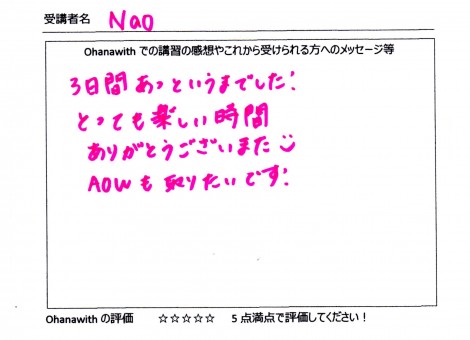 受講者名 Nao
Ohanawith での講習の感想やこれから受けられる方へのメッセージ等
3日間あっというまでした!
とっても楽しい時間
ありがとうございまた☺
AOWも取りたいです!
Ohanawith の評価 ☆☆☆☆☆ 5点満点で評価してください！